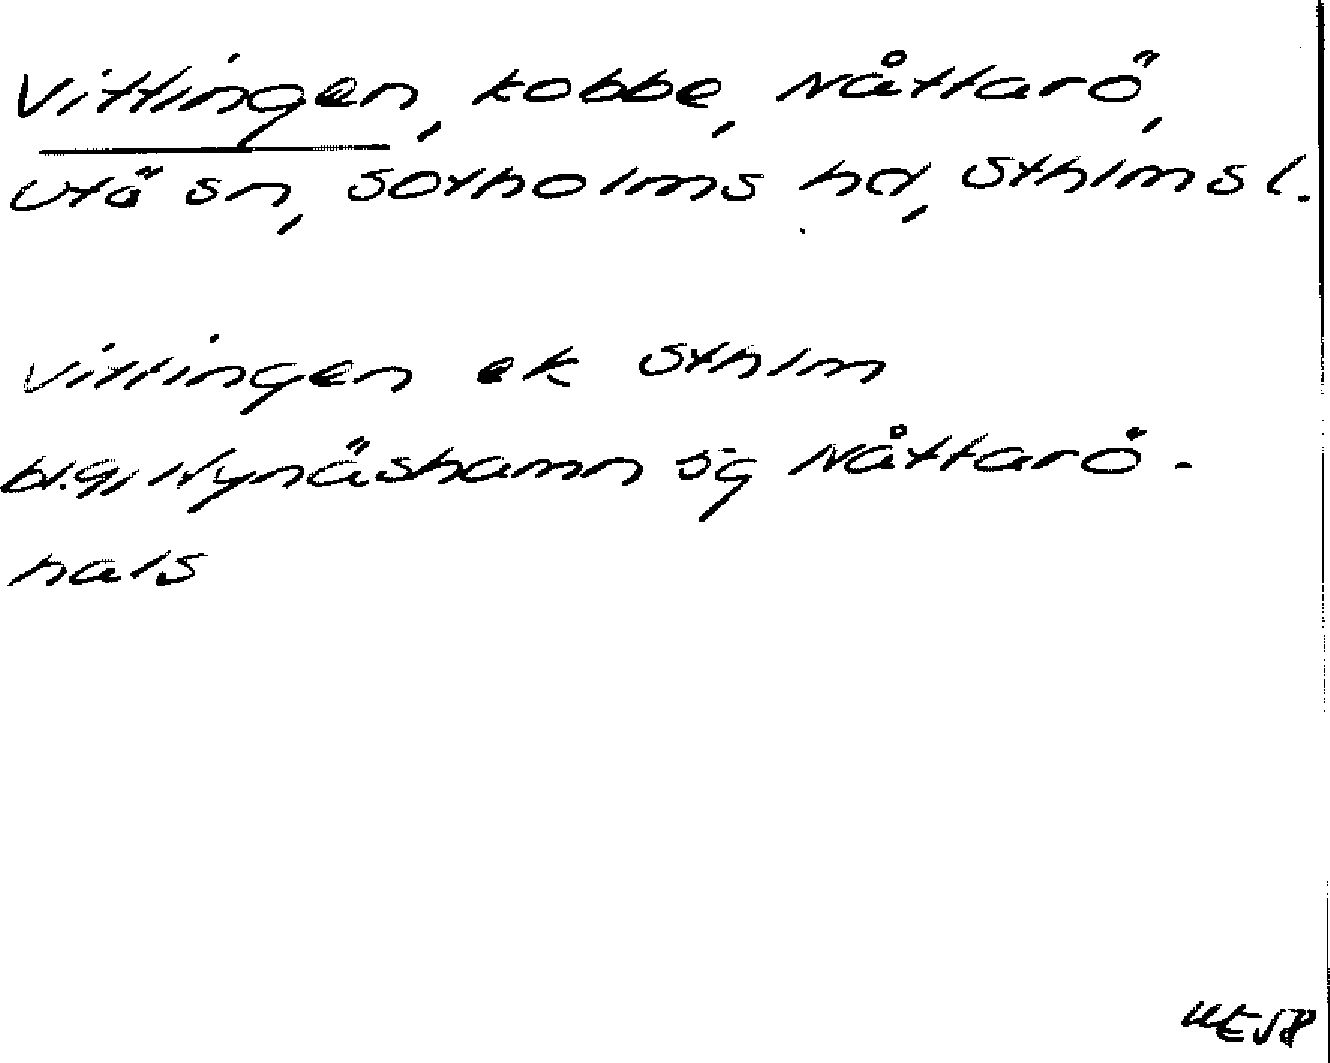 Vittingen, kobbe, Nåttarö,
Utö sn, Sotholms hd, Sthlms l.
Vittingen ek Sthlm
bl.g, Nynäshamn Sg Nåttarö-
hals